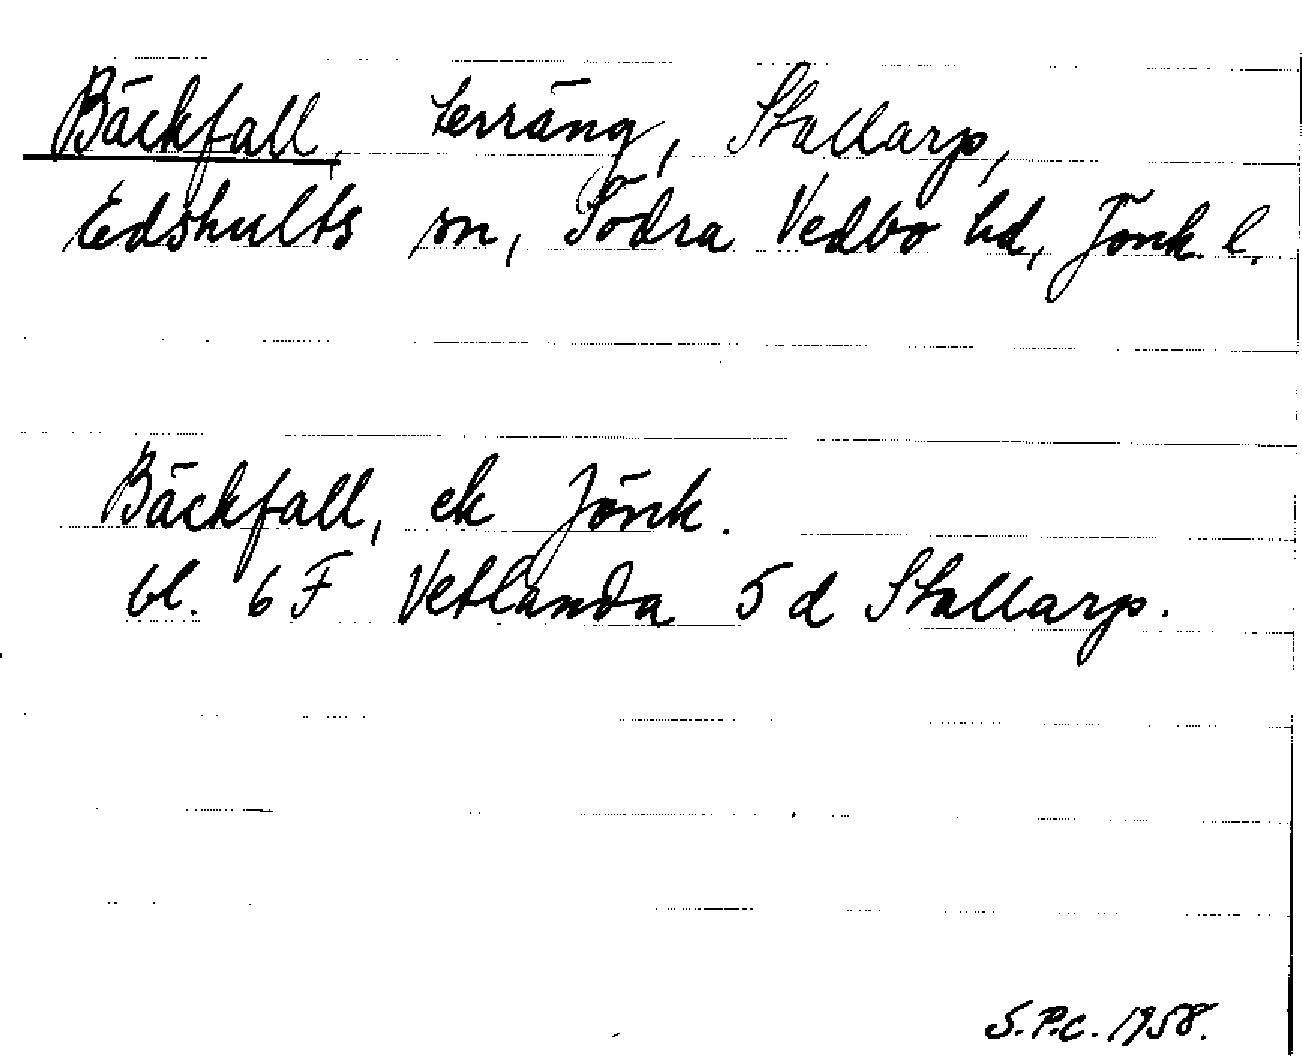 Bäckfall, terräng, Stallarp,
Edshults sn, Södra Vedbo hd, Jönk. l.
Bäckfall, ek Jönk.
bl. 6 F Vetlanda 5 d Stallarp.
S.P.C. 1958.